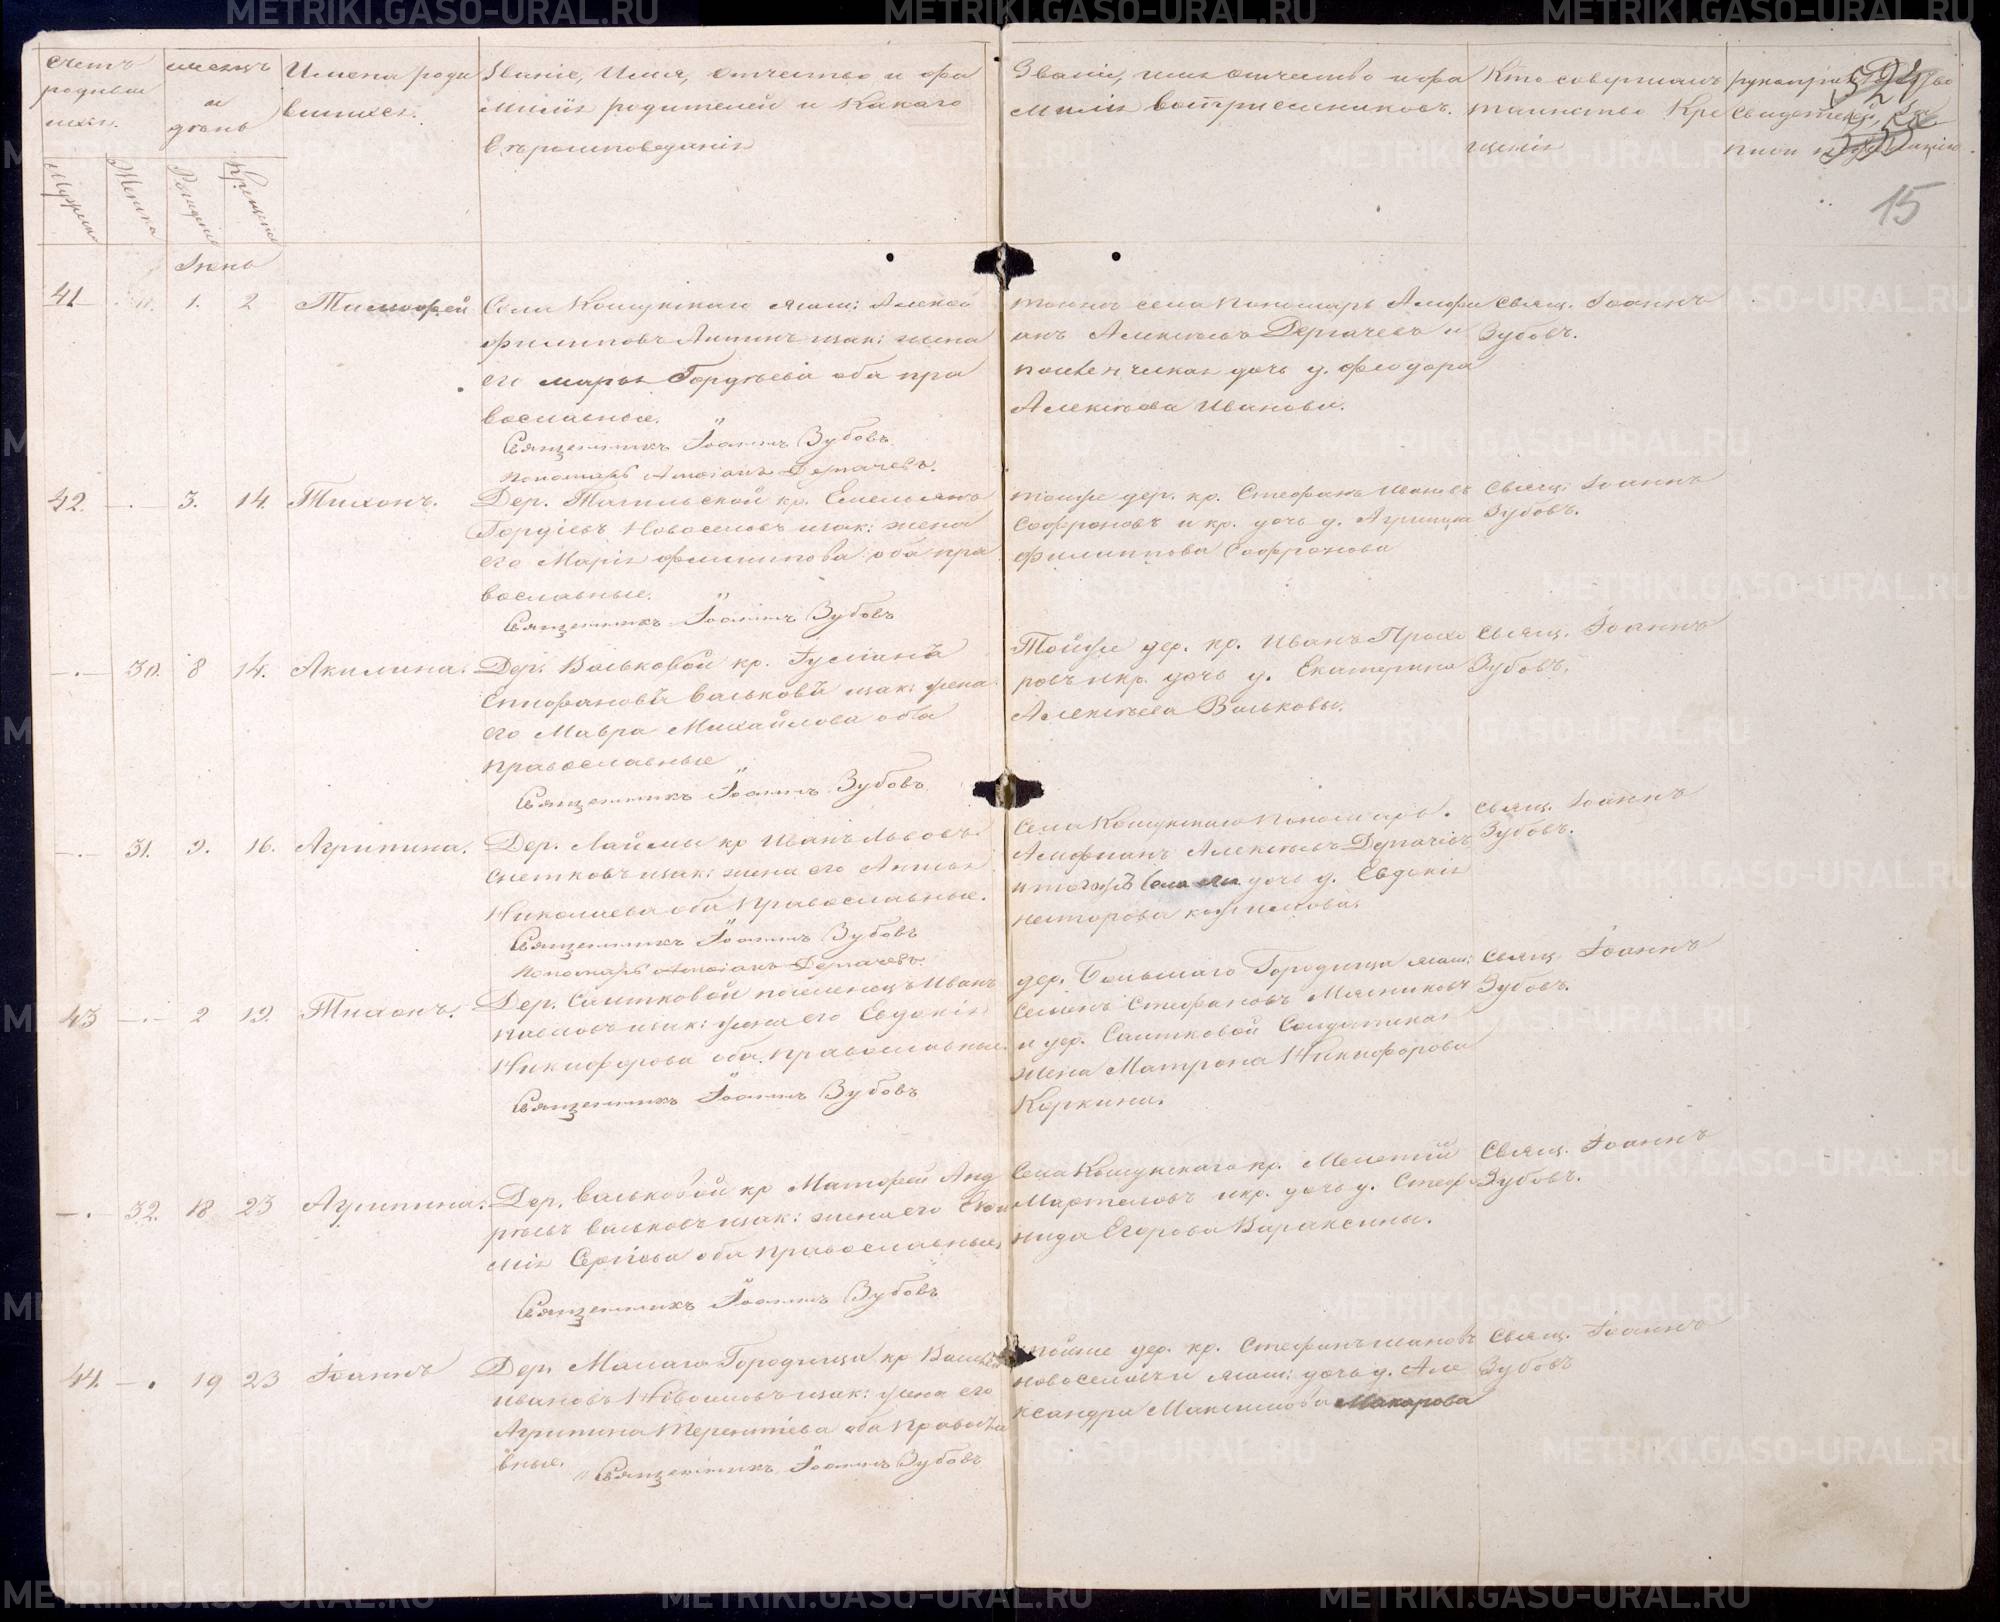 Счетъ
родивш
ихся.
Мужска
Женска
месяцъ
и
день
Рожденiе
Крещенiе
Имена роди
вшихся.
Званiе, Имя, отчество и фа
милiя родителей и Какаго
Вероисповеданiя
Званiе, имя отчество и фа
милiя воспрiемниковъ.
Кто совершалъ
таинство Кре
щенiя
15
Iюнь
41 1. 2 Тимофей
Села Кошукскаго ясаш: Алексей
Филиповъ зак: жена
его Марья Гордеева оба пра
вославные.
Священникъ Iоаннъ Зубовъ.
Пономарь Амфiанъ Дерпачевъ.
тогожъ села Пономарь Амфи
анъ Алексеевъ Дерпачевъ и
дочь д. Феодора
Алексеева Иванова.
Свящ. Iоаннъ
Зубовъ.
42. — 3. 14. Тихонъ.
Дер. кр. Емельянъ
Гордiевъ Новоселовъ зак: жена
его Марiя Филипова оба пра
вославные.
Священникъ Iоаннъ Зубовъ
тойже дер. кр. Стефанъ Ивановъ
Софроновъ и кр. дочь д. Агрипина
Филиппова Софронова
Свящ: Iоаннъ
Зубовъ.
— 30. 8 14. Акилина.
Дер. Вальковой кр. Iулiанъ
Епифановъ Вальковъ зак: жена
его Мавра Михайлова оба
православные
Священникъ Iоаннъ Зубовъ
Тойже дер. кр. Иванъ Прохо
ровъ и кр. дочь д. Екатерина
Алексеева Вальковы.
Свящ. Iоаннъ
Зубовъ.
— 31. 9. 16. Агрипина.
Дер. Лаймы кр Иванъ Львовъ
Снетковъ зак: жена его Анисья
Николаева оба Православные.
Священникъ Iоаннъ Зубовъ
Пономарь Амфiанъ Дерпачевъ.
Села Кошукскаго Пономарь.
Амфианъ Алексеевъ Дерпачевъ
и тогожъ села дочь д. Евдокiя
Несторова
Свящ. Iоаннъ
Зубовъ.
43 — 2 19. Тихонъ.
Дер. Саитковой поселенецъ Иванъ
Павловъ зак: жена его Евдокiя
Никифорова оба православные.
Священникъ Iоаннъ Зубовъ
дер. Большаго Городища ясаш:
Семенъ Стефановъ Мясниковъ
и дер. Саитковой Солдатская
жена Матрона Никифорова
Коркина.
Свящ. Iоаннъ
Зубовъ.
— 32. 18 23 Агрипина.
Дер. Вальковой кр Матфей Анд
реевъ Вальковъ зак: жена его Евфи
мiя Сергiева оба православные.
Священникъ Iоаннъ Зубовъ
Села Кошукскаго кр. Мелетiй
Мартемовъ и кр. дочь д. Стефа
нида Егорова Вараксины.
Свящ. Iоаннъ
Зубовъ.
44. — 19 23 Iоаннъ
Дер. Малаго Городища кр Василiй
Ивановъ Новоселовъ зак: жена его
Агрипина Терентiева оба Правосла
вные.
Священникъ Iоаннъ Зубовъ
тойже дер. кр. Стефанъ Ивановъ
Новоселовъ и ясаш: дочь д. Але
ксандра Максимова Макарова
Свящ. Iоаннъ
Зубовъ
METRIKI.GASO-URAL.RU